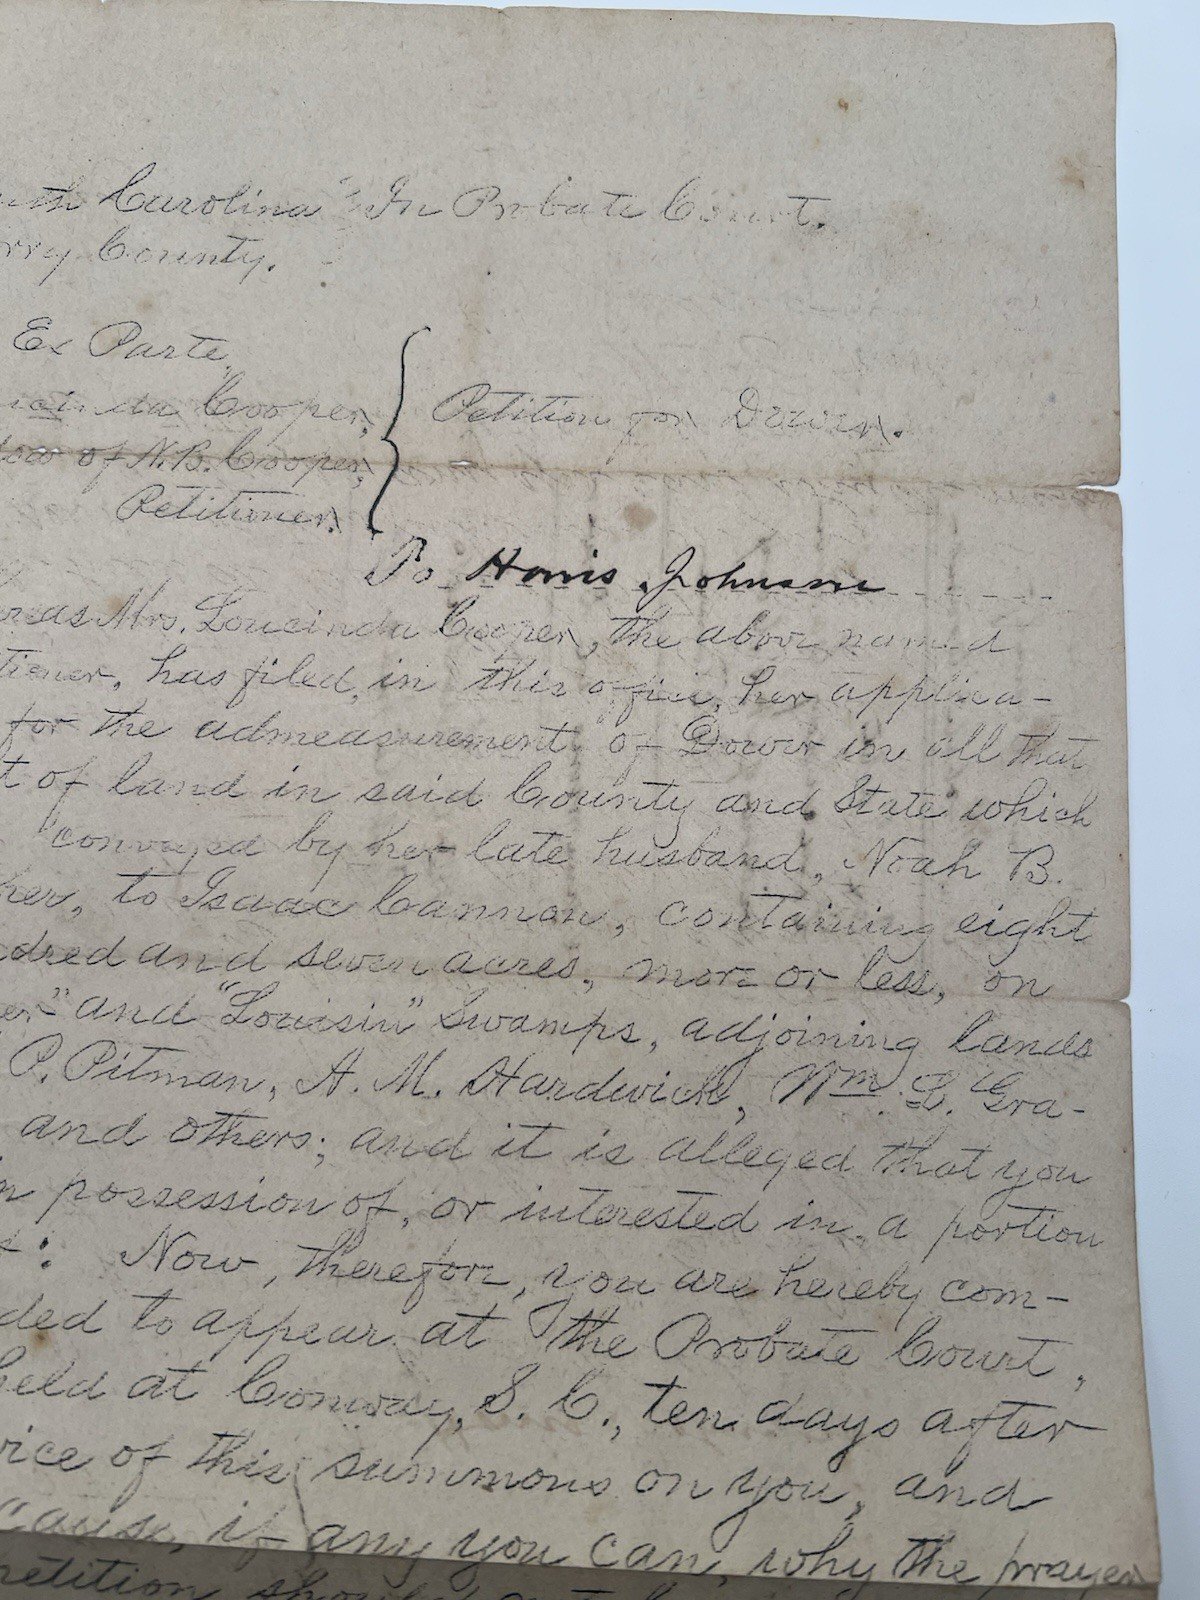 uth Carolina In Probate Court.
rry County.
Ex Parte,
Cooper,
dow of N.B. Cooper,
Petitioner.
Petition for Dower.
To Harris Johnson
reas Mrs. Loucinda Cooper, the above named
tioner, has filed, in this office, her applica-
for the admeasurement of Dower in all that
t of land in said County and State which
conveyed by her late husband, Noah B.
her, to Isaac Cannon, containing eight
dred and seven acres, more or less, on
er" and "Louisin" Swamps, adjoining lands
P. Pitman, H. M. Hardwick, Wm. L. Gra-
and others; and it is alleged that you
n possession of, or interested in, a portion
: Now, therefore, you are hereby com-
ded to appear at the Probate Court,
held at Conway, S. C., ten days after
vice of this summons on you, and
cause, if any you can, why the prayer
petition should not